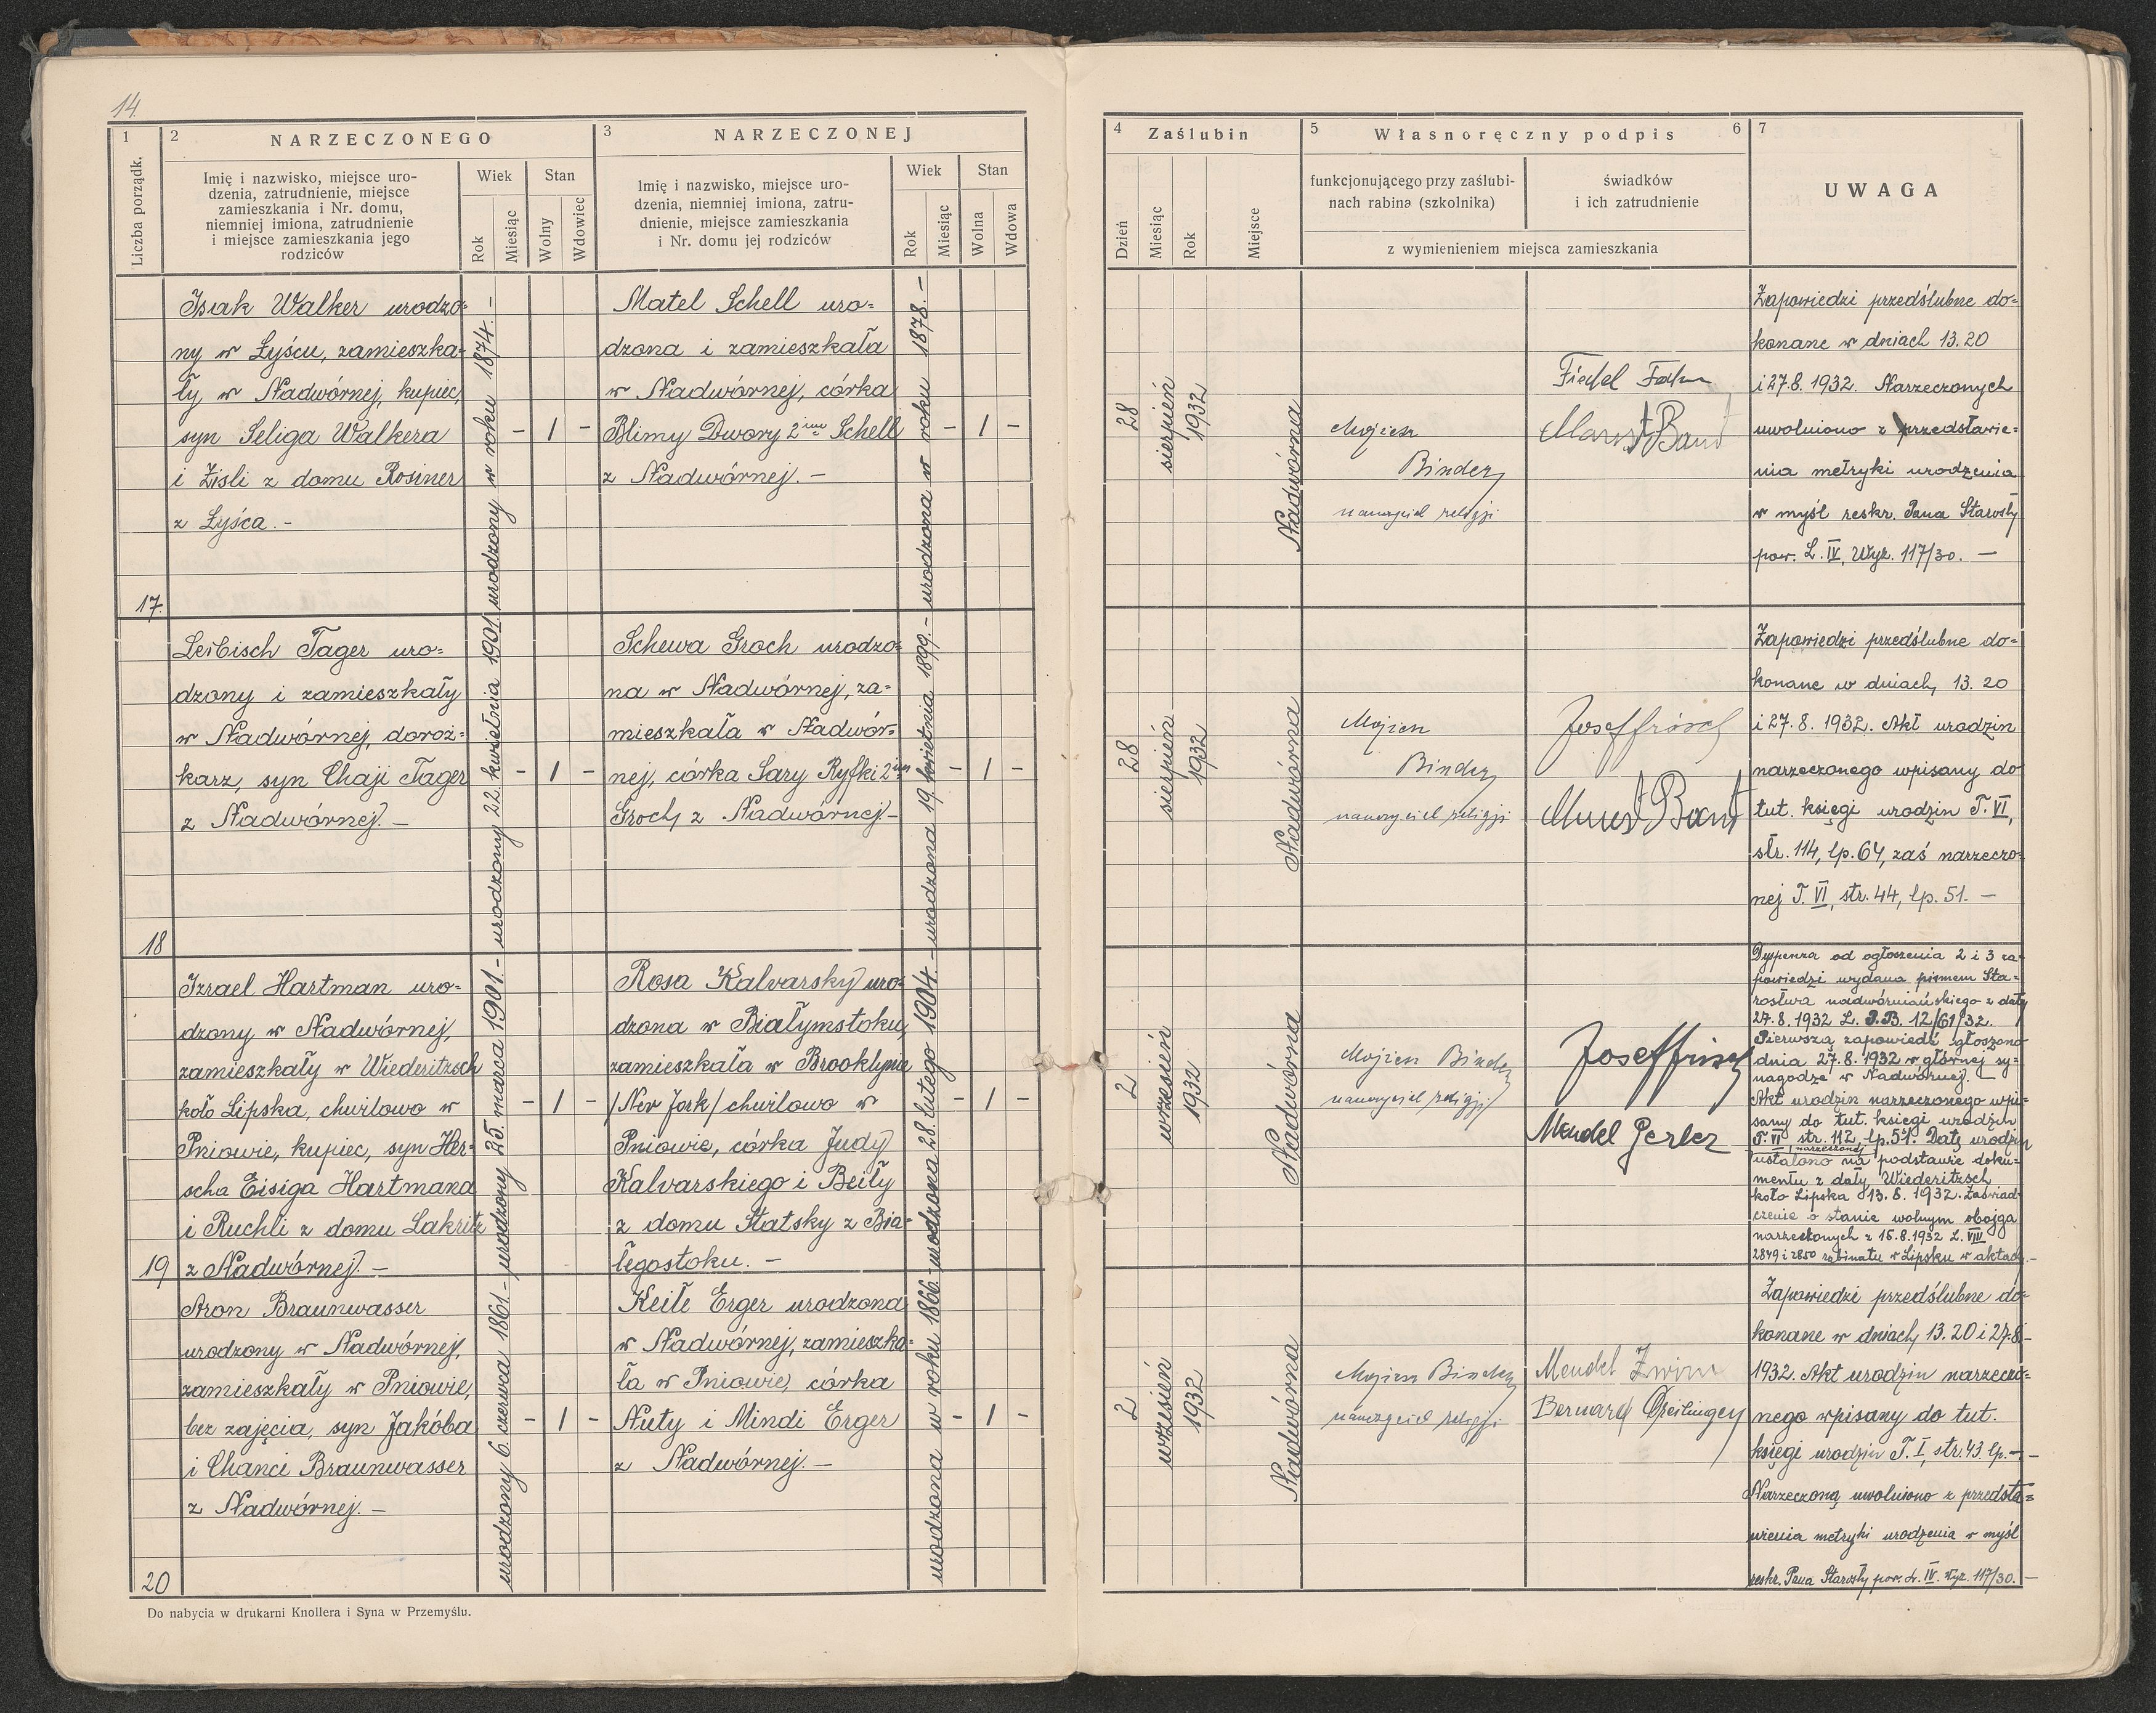 14.
1
Liczba porządk.
2
NARZECZONEGO
Imię i nazwisko, miejsce uro-
dzenia, zatrudnienie, miejsce
zamieszkania i Nr. domu,
niemniej imiona, zatrudnienie
i miejsce zamieszkania jego
rodziców
Wiek
Rok
Miesiąc
Stan
Wolny
Wdowiec
3
NARZECZONEJ
Imię i nazwisko, miejsce uro-
dzenia, niemniej imiona, zatru-
dnienie, miejsce zamieszkania
i Nr. domu jej rodziców
Wiek
Rok
Miesiąc
Stan
Wolna
Wdowa
4
Zaślubin
Dzień
Miesiąc
Rok
Miejsce
5
Własnoręczny podpis
6
funkcjonującego przy zaślubi-
nach rabina (szkolnika)
świadków
i ich zatrudnienie
z wymienieniem miejsca zamieszkania
7
UWAGA
17.
Isak Walker urodzo=
ny w Łyścu, zamieszka=
ły w Nadwórnej, kupiec,
syn Seliga Walkera
i Zisli z domu Rosiner
z Łyśca. -
urodzony w roku 1874. -
- 1 -
Matel Schell uro=
dzona i zamieszkała
w Nadwórnej, córka
Blimy Dwory 2im Schell
z Nadwórnej. -
urodzona w roku 1878. -
- 1 -
28
sierpień
1932
Nadwórna
Mojżesz
Binder
nauczyciel religji
Fiedel
Band
Zapowiedzi przedślubne do=
konane w dniach 13. 20
i 27. 8. 1932. Narzeczonych
uwolniono z przedstawie=
nia metryki urodzenia
w myśl reskr. Pana Starosty
pow. L. IV. Wyz. 117/30. -
18
Leibisch Tager uro=
dzony i zamieszkały
w Nadwórnej, doroż=
karz, syn Chaji Tager
z Nadwórnej. -
urodzony 22. kwietnia 1901.
- 1 -
Schewa Groch urodzo=
na w Nadwórnej, za=
mieszkała w Nadwór=
nej, córka Sary Ryfki 2im
Groch, z Nadwórnej -
urodzona 19. kwietnia 1899. -
- 1 -
28
sierpień
1932
Nadwórna
Mojżesz
Binder
nauczyciel religji
Josef Frisch
Band
Zapowiedzi przedślubne do=
konane w dniach, 13. 20
i 27. 8. 1932. Akt urodzin
narzeczonego wpisany do
tut. księgi urodzin T. VI,
str. 114, lp. 64, zaś narzeczo=
nej T. VI, str. 44, lp. 51. -
19
Izrael Hartman uro=
dzony w Nadwórnej,
zamieszkały w Wiederitzsch
koło Lipska, chwilowo w
Pniowie, kupiec, syn Her=
scha Eisiga Hartmana
i Ruchli z domu Lakritz
z Nadwórnej. -
urodzony 25. marca 1901. -
- 1 -
Rosa Kalvarsky uro=
dzona w Białymstoku,
zamieszkała w Brooklynie
/Nev Jork/ chwilowo w
Pniowie, córka Judy
Kalvarskiego i Beily
z domu Statsky z Bia=
łegostoku. -
urodzona 28. lutego 1904. -
- 1 -
2
wrzesień
1932
Nadwórna
Mojżesz Binder
nauczyciel religji
Josef Frisch
Mendel Perler
Dyspenza od ogłoszenia 2 i 3 za=
powiedzi wydana pismem Sta=
rostwa nadwórniańskiego z daty
27. 8. 1932 L. J.B. 12/61/32.
Pierwszą zapowiedź głoszono
dnia 27. 8. 1932 w głównej sy=
nagodze w Nadwórnej. -
Akt urodzin narzeczonego wpi=
sany do tut. księgi urodzin
T. VI str. 112, lp. 51. Datę urodzin
narzeczonej
ustalono na podstawie doku=
mentu z daty Wiederitzsch
koło Lipska 13. 8. 1932. Zaświad=
czenie o stanie wolnym obojga
narzeczonych z 15. 8. 1932 L. VIII
2849 i 2850 rabinatu w Lipsku w aktach. -
20
Aron Braunwasser
urodzony w Nadwórnej,
zamieszkały w Pniowie,
bez zajęcia, syn Jakóba
i Chanci Braunwasser
z Nadwórnej. -
urodzony 6. czerwca 1861. -
- 1 -
Keile Erger urodzona
w Nadwórnej, zamieszka=
ła w Pniowie, córka
Nuty i Mindi Erger
z Nadwórnej. -
urodzona w roku 1866. -
- 1 -
2
wrzesień
1932
Nadwórna
Mojżesz Binder
nauczyciel religji
Mendel
Bernard
Zapowiedzi przedślubne do=
konane w dniach, 13. 20 i 27. 8. -
1932. Akt urodzin narzeczo=
nego wpisany do tut.
księgi urodzin T. I, str. 43 lp. - . -
Narzeczoną uwolniono z przedsta=
wienia metryki urodzenia w myśl
reskr. Pana Starosty pow. L. IV. Wyz. 117/30. -
Do nabycia w drukarni Knollera i Syna w Przemyślu.